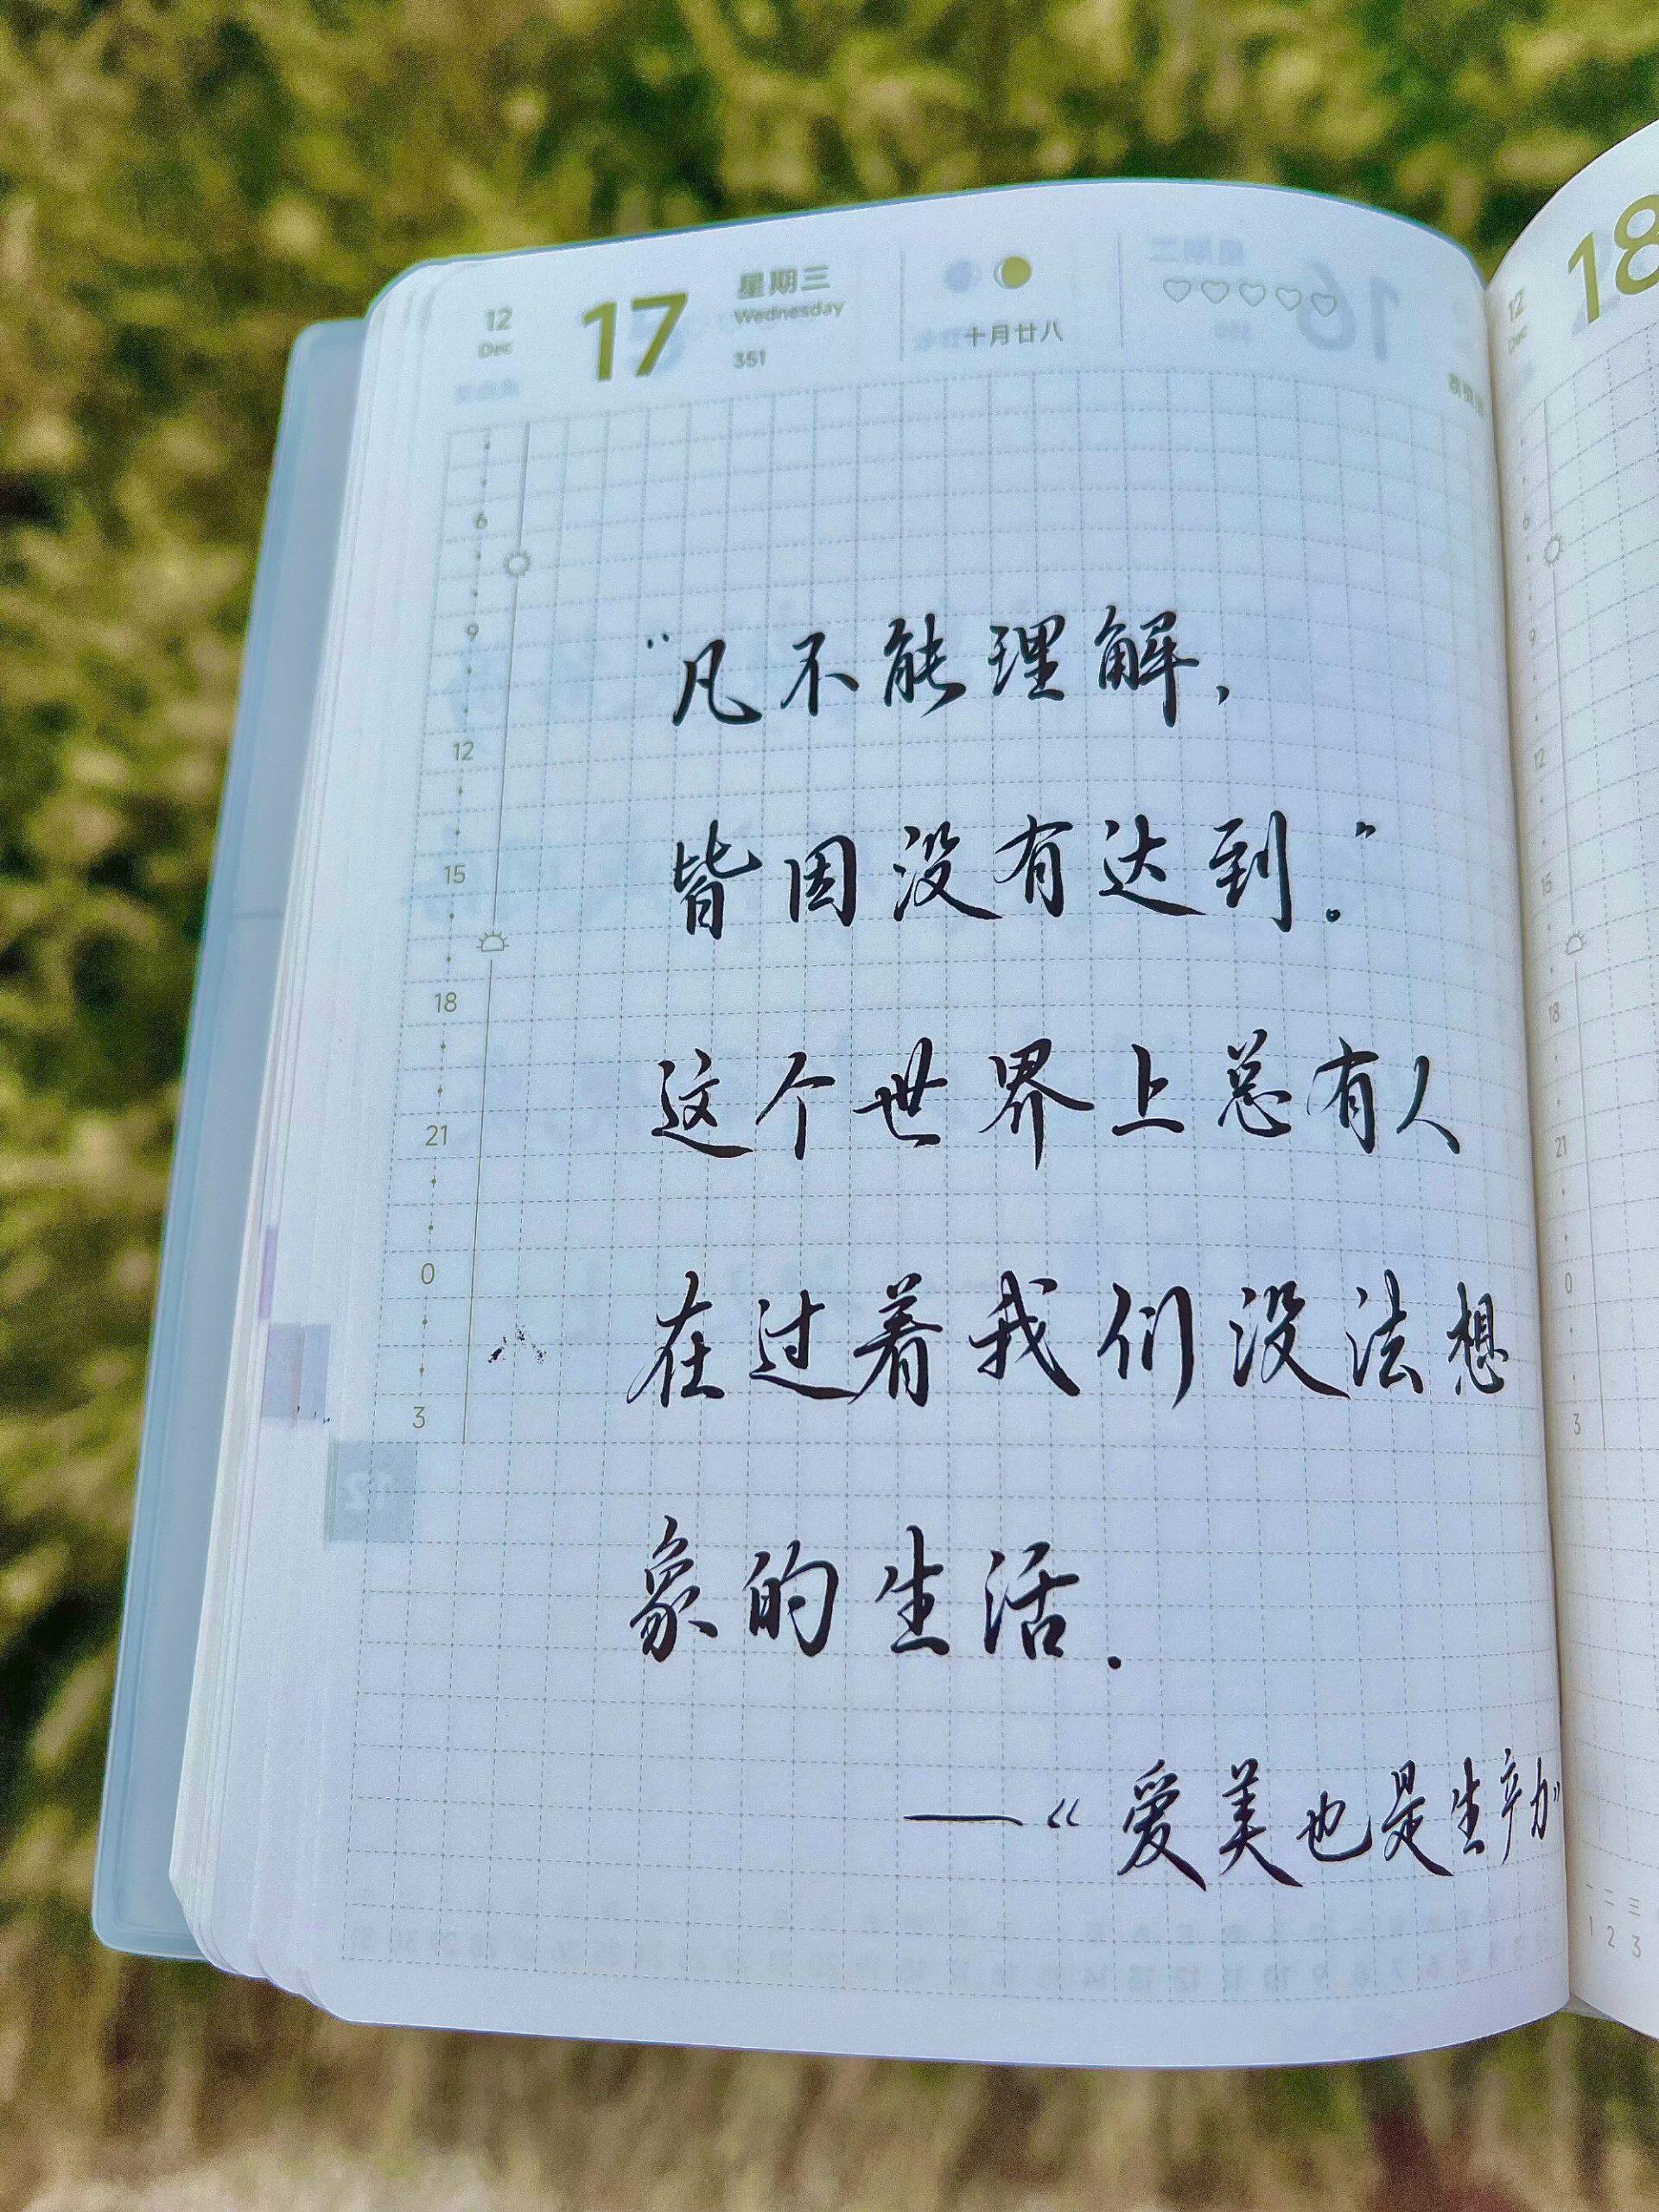 12 17 星期三 十月廿八
Dec Wednesday
351
6
9
12
15
18
21
0
3
“凡不能理解，
皆因没有达到。”
这个世界上总有人
在过着我们没法想
象的生活.
——“爱美也是生产力”
12 18
Dec
6
9
12
15
18
21
0
3
一 二 三
1 2 3